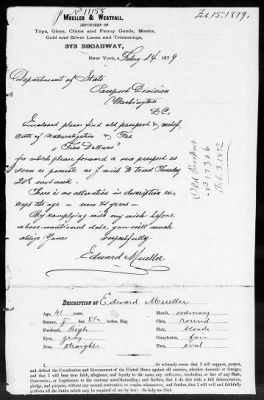 No 11158
Feb. 15. 1879.
MUELLER & WESTFALL,
IMPORTERS OF
Toys, Glass, China and Fancy Goods, Masks,
Gold and Silver Laces and Trimmings,
373 BROADWAY,
New York, Feby 14 1879
Department of State
Passport Division
Washington
D.C.
Enclosed please find old passport & certifi-
cate of Naturalization & Fee
"Five Dollars"
for which please forward a new passport as
soon as possible as I wish to travel Thursday
20th next week.
There is no alteration in description ex-
cept the age – now 41 years –
By complying with my wish before
above mentioned date, you will much
oblige Yours Respectfully
Edward Mueller
Old Passport
No 17306
Feb. 3. 1872
DESCRIPTION OF Edward Mueller
Age, 41 years
Mouth, ordinary
Stature, 5 feet 8 1/2 inches, Eng.
Chin, round
Forehead, high
Hair, blonde
Eyes, grey
Complexion, fair
Nose, straight
Face, oval
I, do solemnly swear that I will support, protect,
and defend the Constitution and Government of the United States against all enemies, whether domestic or foreign;
and that I will bear true faith, allegiance, and loyalty to the same, any ordinance, resolution, or law of any State,
Convention, or Legislature to the contrary notwithstanding; and further, that I do this with a full determination,
pledge, and purpose, without any mental reservation or evasion whatsoever; and further, that I will well and faithfully
perform all the duties which may be required of me by law. So help me God.